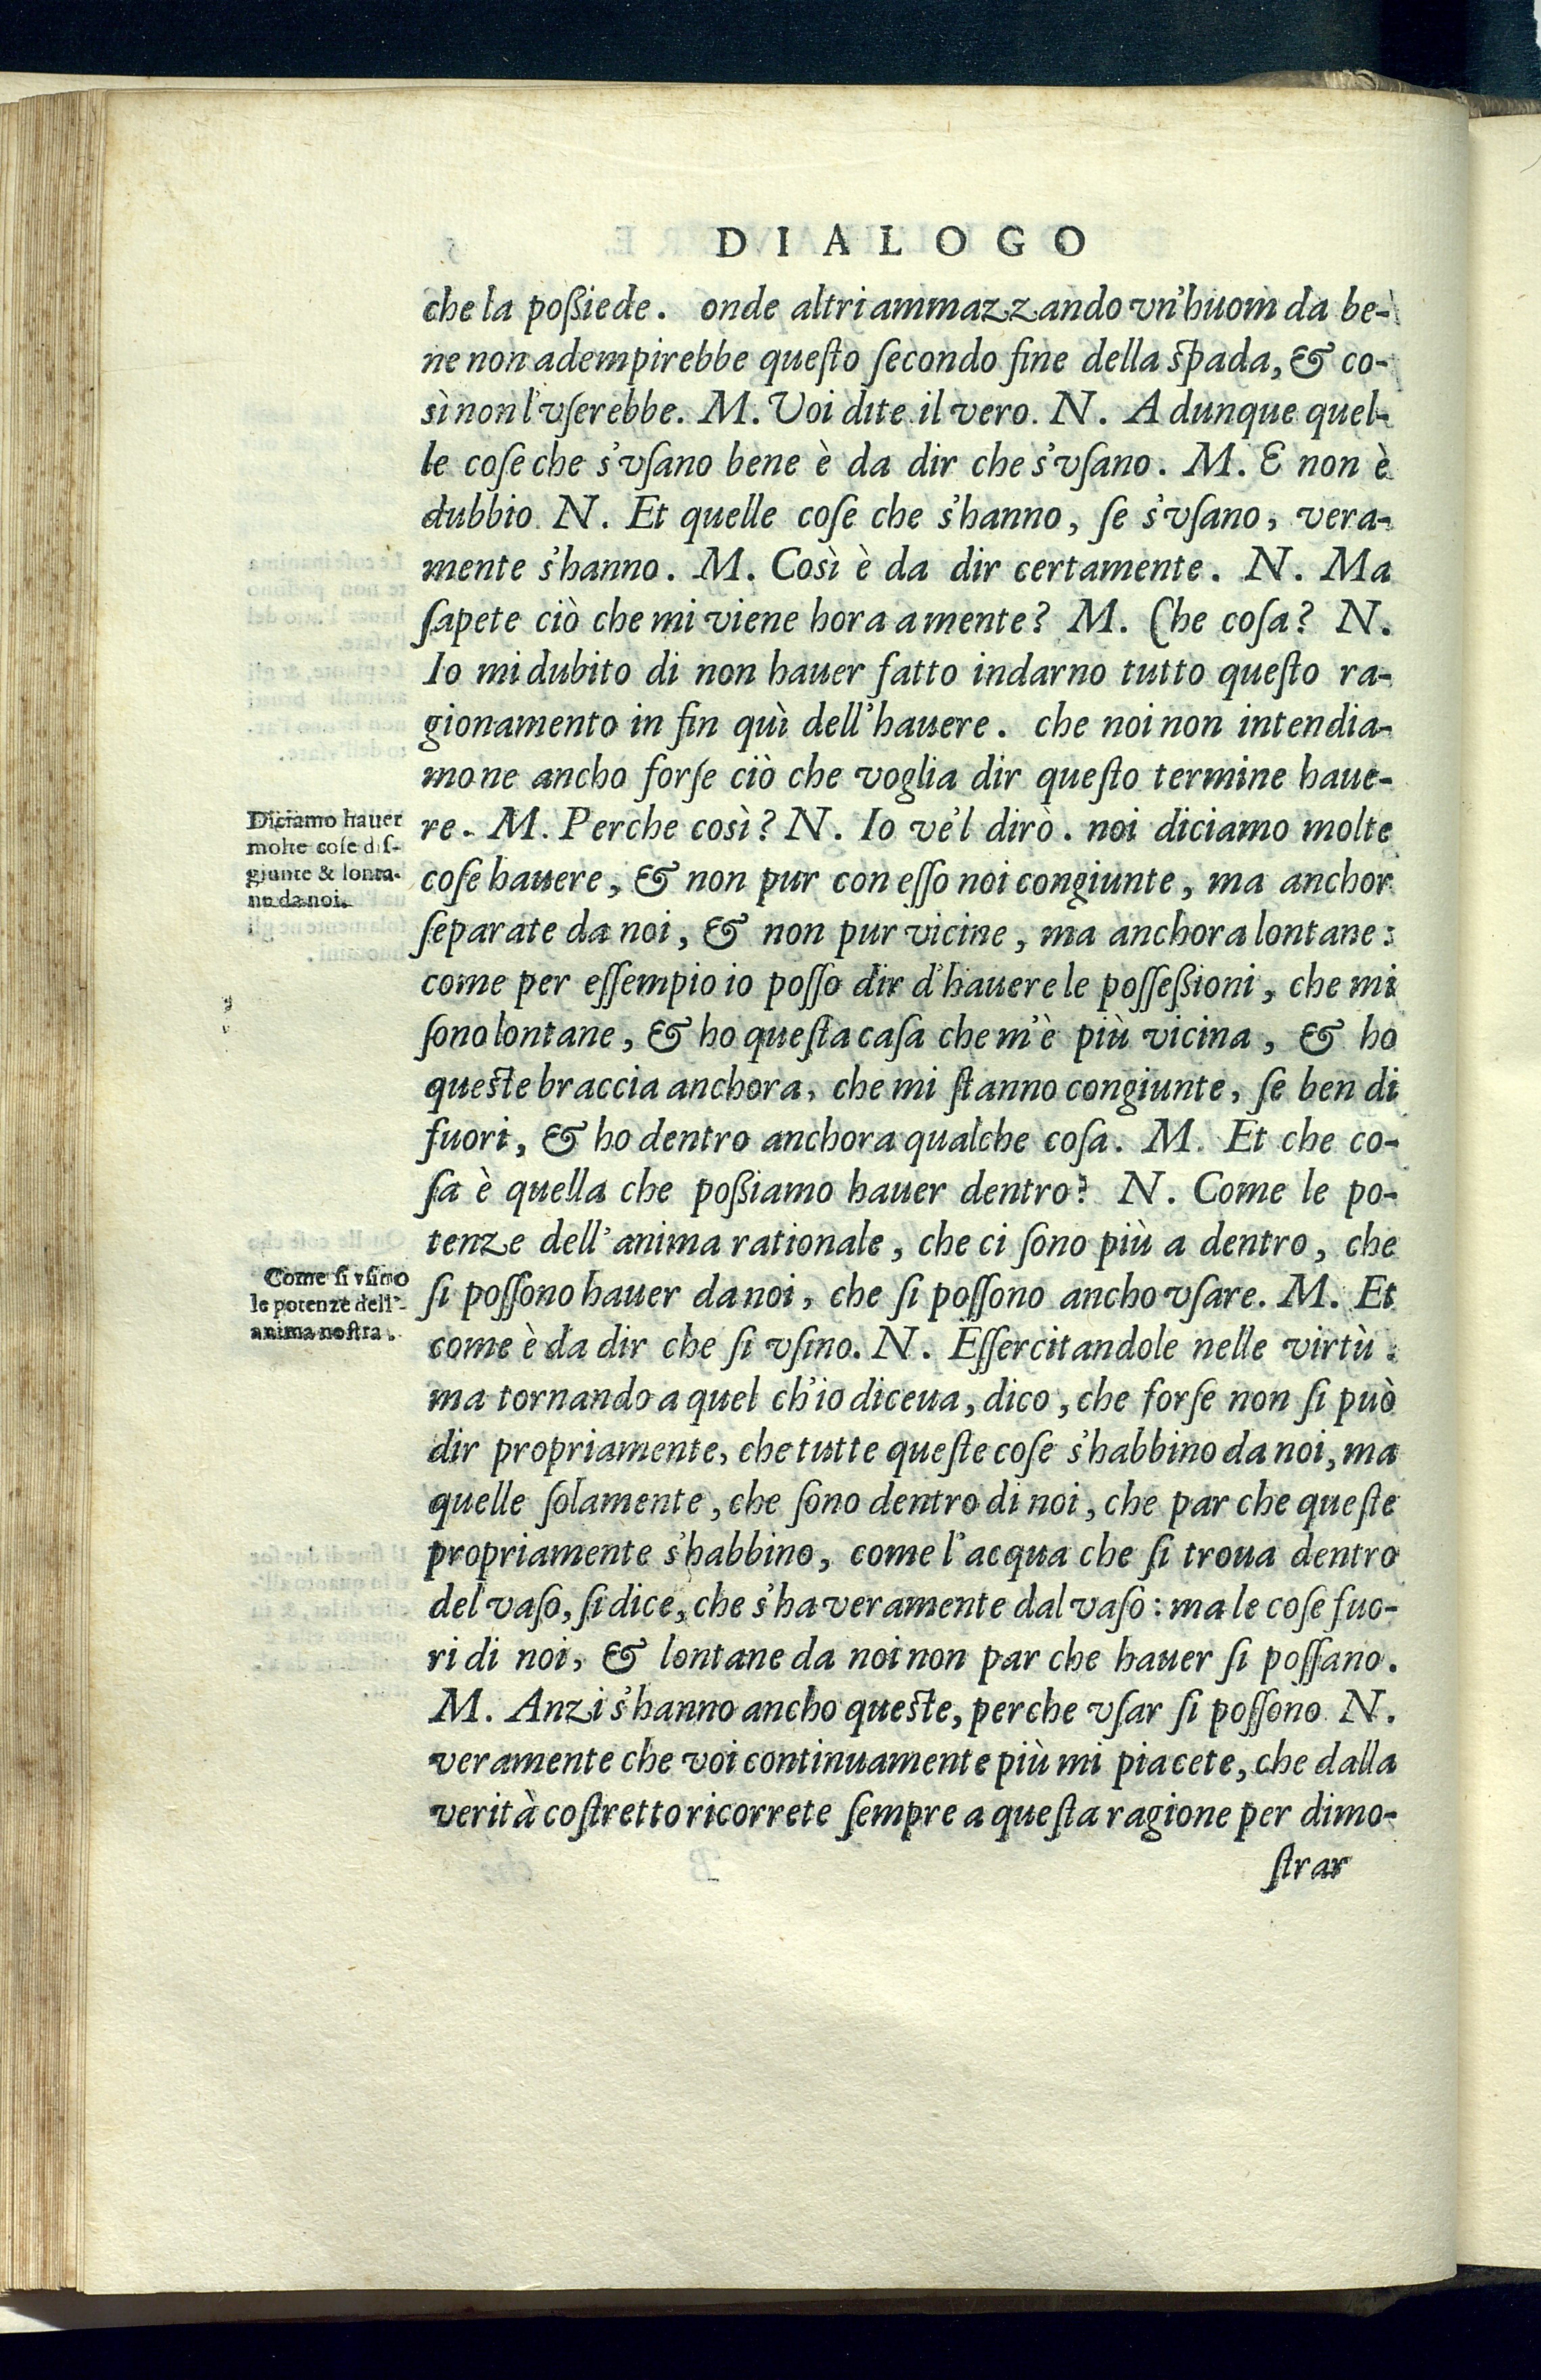 DIALOGO
che la poßiede. onde altri ammazzando vn'huom da be-
ne non adempirebbe questo ſecondo fine della spada, & co-
sì non l'vſerebbe. M. Voi dite il vero. N. Adunque quel-
le coſe che s'vſano bene è da dir che s'vſano. M. E non è
dubbio. N. Et quelle coſe che s'hanno, ſe s'vſano, vera-
mente s'hanno. M. Così è da dir certamente. N. Ma
ſapete ciò che mi viene hora a mente? M. Che coſa? N.
Io mi dubito di non hauer fatto indarno tutto questo ra-
gionamento in fin quì dell'hauere. che noi non intendia-
mo ne ancho forſe ciò che voglia dir questo termine haue-
Diciamo hauer
molte coſe diſ-
giunte & lonta-
ne da noi.
re. M. Perche così? N. Io ve'l dirò. noi diciamo molte
coſe hauere, & non pur con eſſo noi congiunte, ma anchor
ſeparate da noi, & non pur vicine, ma anchora lontane:
come per eſſempio io poſſo dir d'hauere le poſſeßioni, che mi
ſono lontane, & ho questa caſa che m'è più vicina, & ho
queste braccia anchora, che mi stanno congiunte, ſe ben di
fuori, & ho dentro anchora qualche coſa. M. Et che co-
ſa è quella che poßiamo hauer dentro? N. Come le po-
tenze dell'anima rationale, che ci ſono più a dentro, che
Come ſi vſino
le potenze dell'-
anima noſtra.
ſi poſſono hauer da noi, che ſi poſſono ancho vſare. M. Et
come è da dir che ſi vſino. N. Eſſercitandole nelle virtù.
ma tornando a quel ch'io diceua, dico, che forſe non ſi può
dir propriamente, che tutte queste coſe s'habbino da noi, ma
quelle ſolamente, che ſono dentro di noi, che par che queste
propriamente s'habbino, come l'acqua che ſi troua dentro
del vaſo, ſi dice, che s'ha veramente dal vaſo: ma le coſe fuo-
ri di noi, & lontane da noi non par che hauer ſi poſſano.
M. Anzi s'hanno ancho queste, perche vſar ſi poſſono. N.
veramente che voi continuamente più mi piacete, che dalla
verità costretto ricorrete ſempre a questa ragione per dimo-
strar